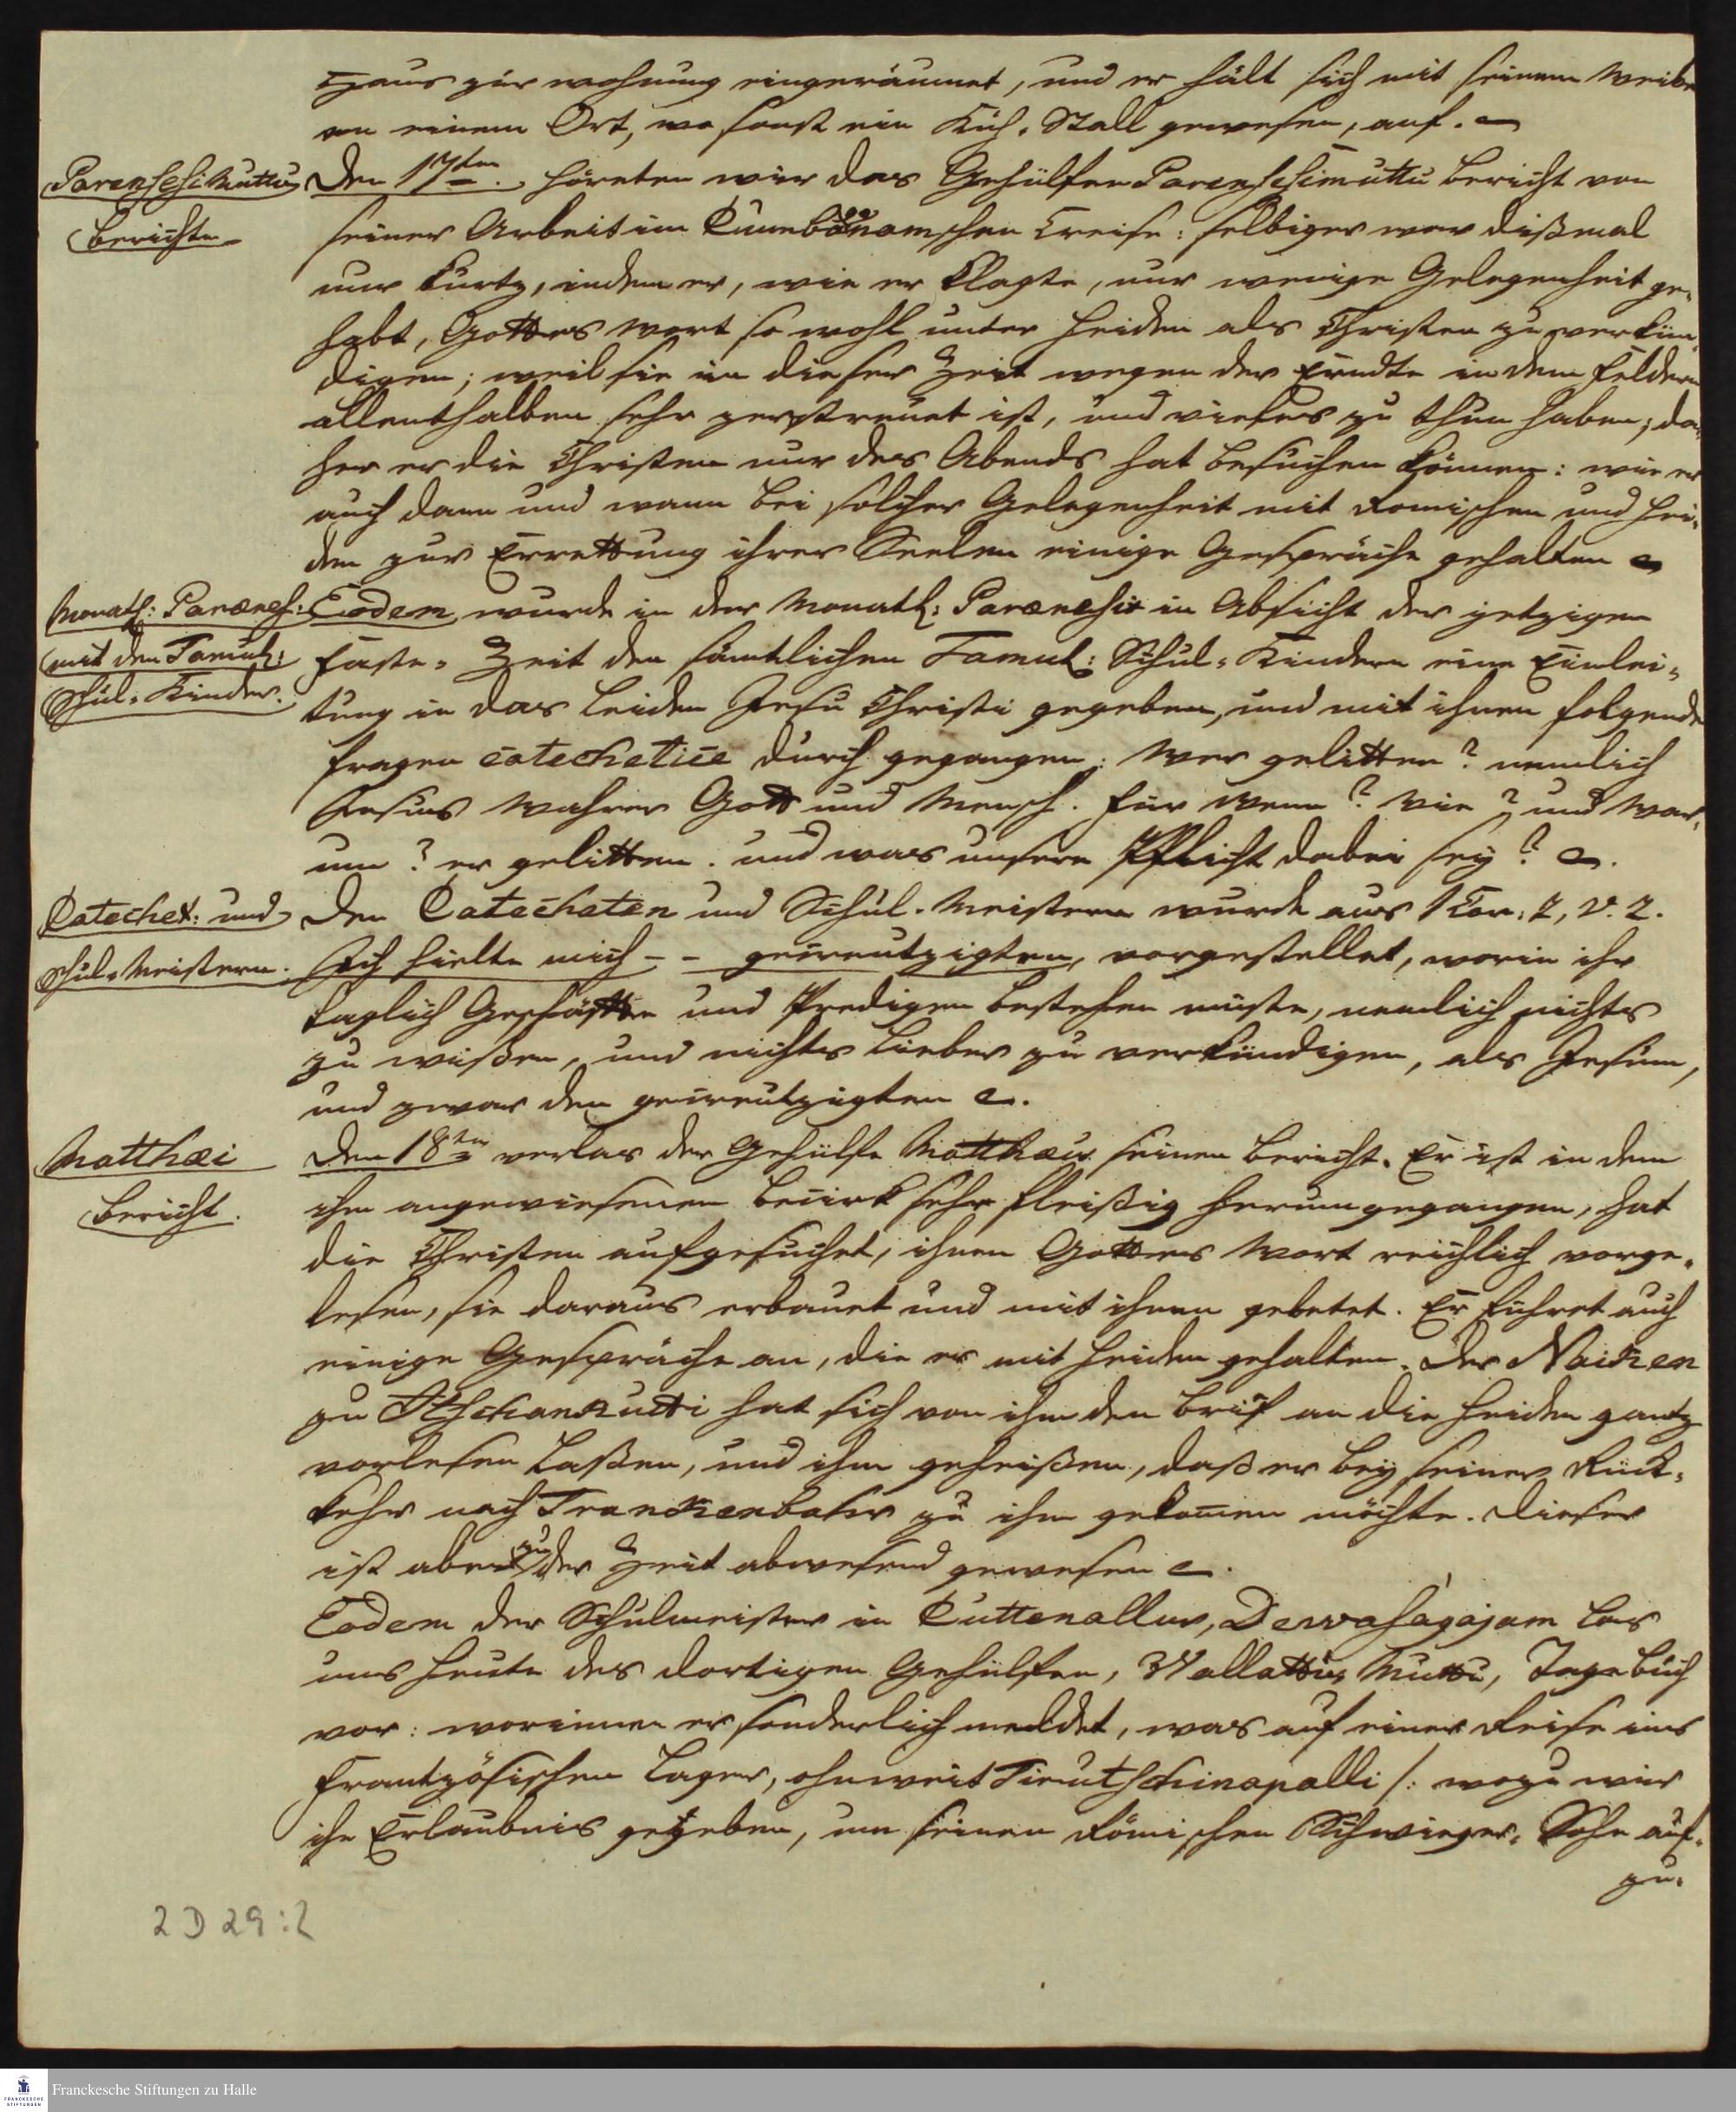 Haus zur wohnung eingeräumet, und er hält sich mit seinem Weibe
an einem Ort, wo sonst ein Küh-Stall gewesen, auf.
Parenschimuttus
Berichte
Den 17ten. höreten wir das Gehülfen Parenschimuttu Bericht von
seiner Arbeit im Cumbagonamschen Creise: selbiger war dißmal
nur kurtz, indem er, wie er klagte, nur wenige Gelegenheit ge-
habt, Gottes Wort so wohl unter Heiden als Christen zu verkün-
digen; weil sie in dieser Zeit wegen der Erndte in den Feldern
allenthalben sehr zerstreuet ist, und vieles zu thun haben; da-
her er die Christen nur des Abends hat besuchen können: wie er
auch dann und wann bei solcher Gelegenheit mit Romischen und Hei-
den zur Errettung ihrer Seelen einige Gespräche gehalten
Monatl: Parænes:
mit den Tamul:
Schul-Kinder.
Eodem wurde in der Monatl: Parænesis in Absicht der jetzigen
Faste-Zeit den sämtlichen Tamul: Schul-Kindern eine Einlei-
tung in das Leiden Jesu Christi gegeben, und mit ihnen folgende
Fragen catechetice durch gegangen: Wer gelitten? nemlich
Jesus wahrer Gott und Mensch. Für wenn? Wie? und War-
um? er gelitten. und was unsere Pflicht dabei sey? c.
Catechet: und
Schul-Meistern.
Den Catecheten und Schul-Meistern wurde aus 1 Cor: 2, v. 2.
Ich hielte mich - - gecreutzigten, vorgestellet, worin ihr
täglich Geschäfte und Predigen bestehen müste, nemlich nichts
zu wißen, und nichts lieber zu verkündigen, als Jesum,
und zwar den gecreutzigten c.
Matthæi
Bericht.
Den 18ten verlas der Gehülfe Matthæus seinen Bericht. Er ist in dem
ihm angewiesenen Becirk sehr fleißig herumgegangen, hat
die Christen aufgesuchet, ihnen Gottes Wort reichlich vorge-
lesen, sie daraus erbauet und mit ihnen gebetet. Er führet auch
einige Gespräche an, die er mit Heiden gehalten. Der Naicken
zu Atschankutti hat sich von ihm den Brief an die Heiden gantz
vorlesen laßen, und ihm geheißen, daß er bey seiner Rück-
kehr nach Tranckenbahr zu ihm gekomen möchte. Dieser
ist aber zu der Zeit abwesend gewesen c.
Eodem der Schulmeister in Puttenallur, Dewasagajam las
uns heute des dortigen Gehülfen, Wallattiu Muttu, Tagebuch
vor: worinnen er sonderlich meldet, was auf einer Reise ins
Frantzösischen Lager, ohnweit Tirutschinapalli /: wozu wir
ihn Erlaubnis gegeben, um seinen Römischen Schwieger-Sohn auf-
zu-
2 D 29:2
FRANCKESCHE STIFTUNGEN
Franckesche Stiftungen zu Halle